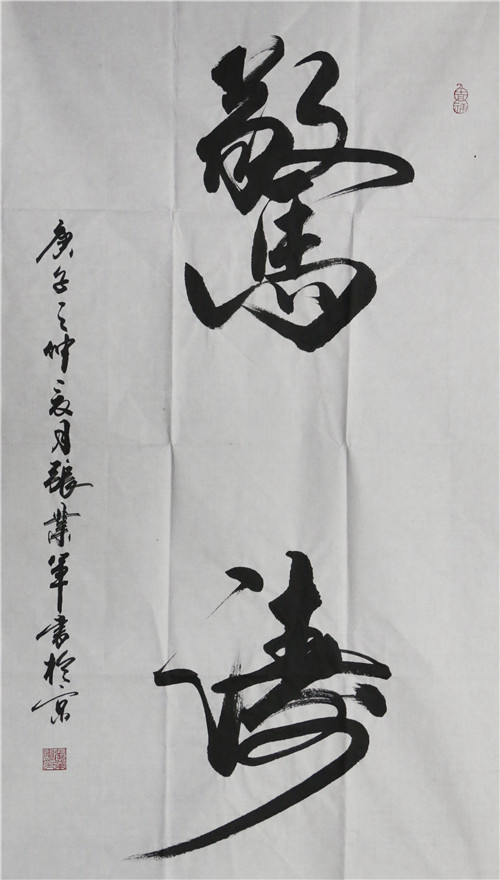 驚濤
庚子之仲夏月張業軍書於京